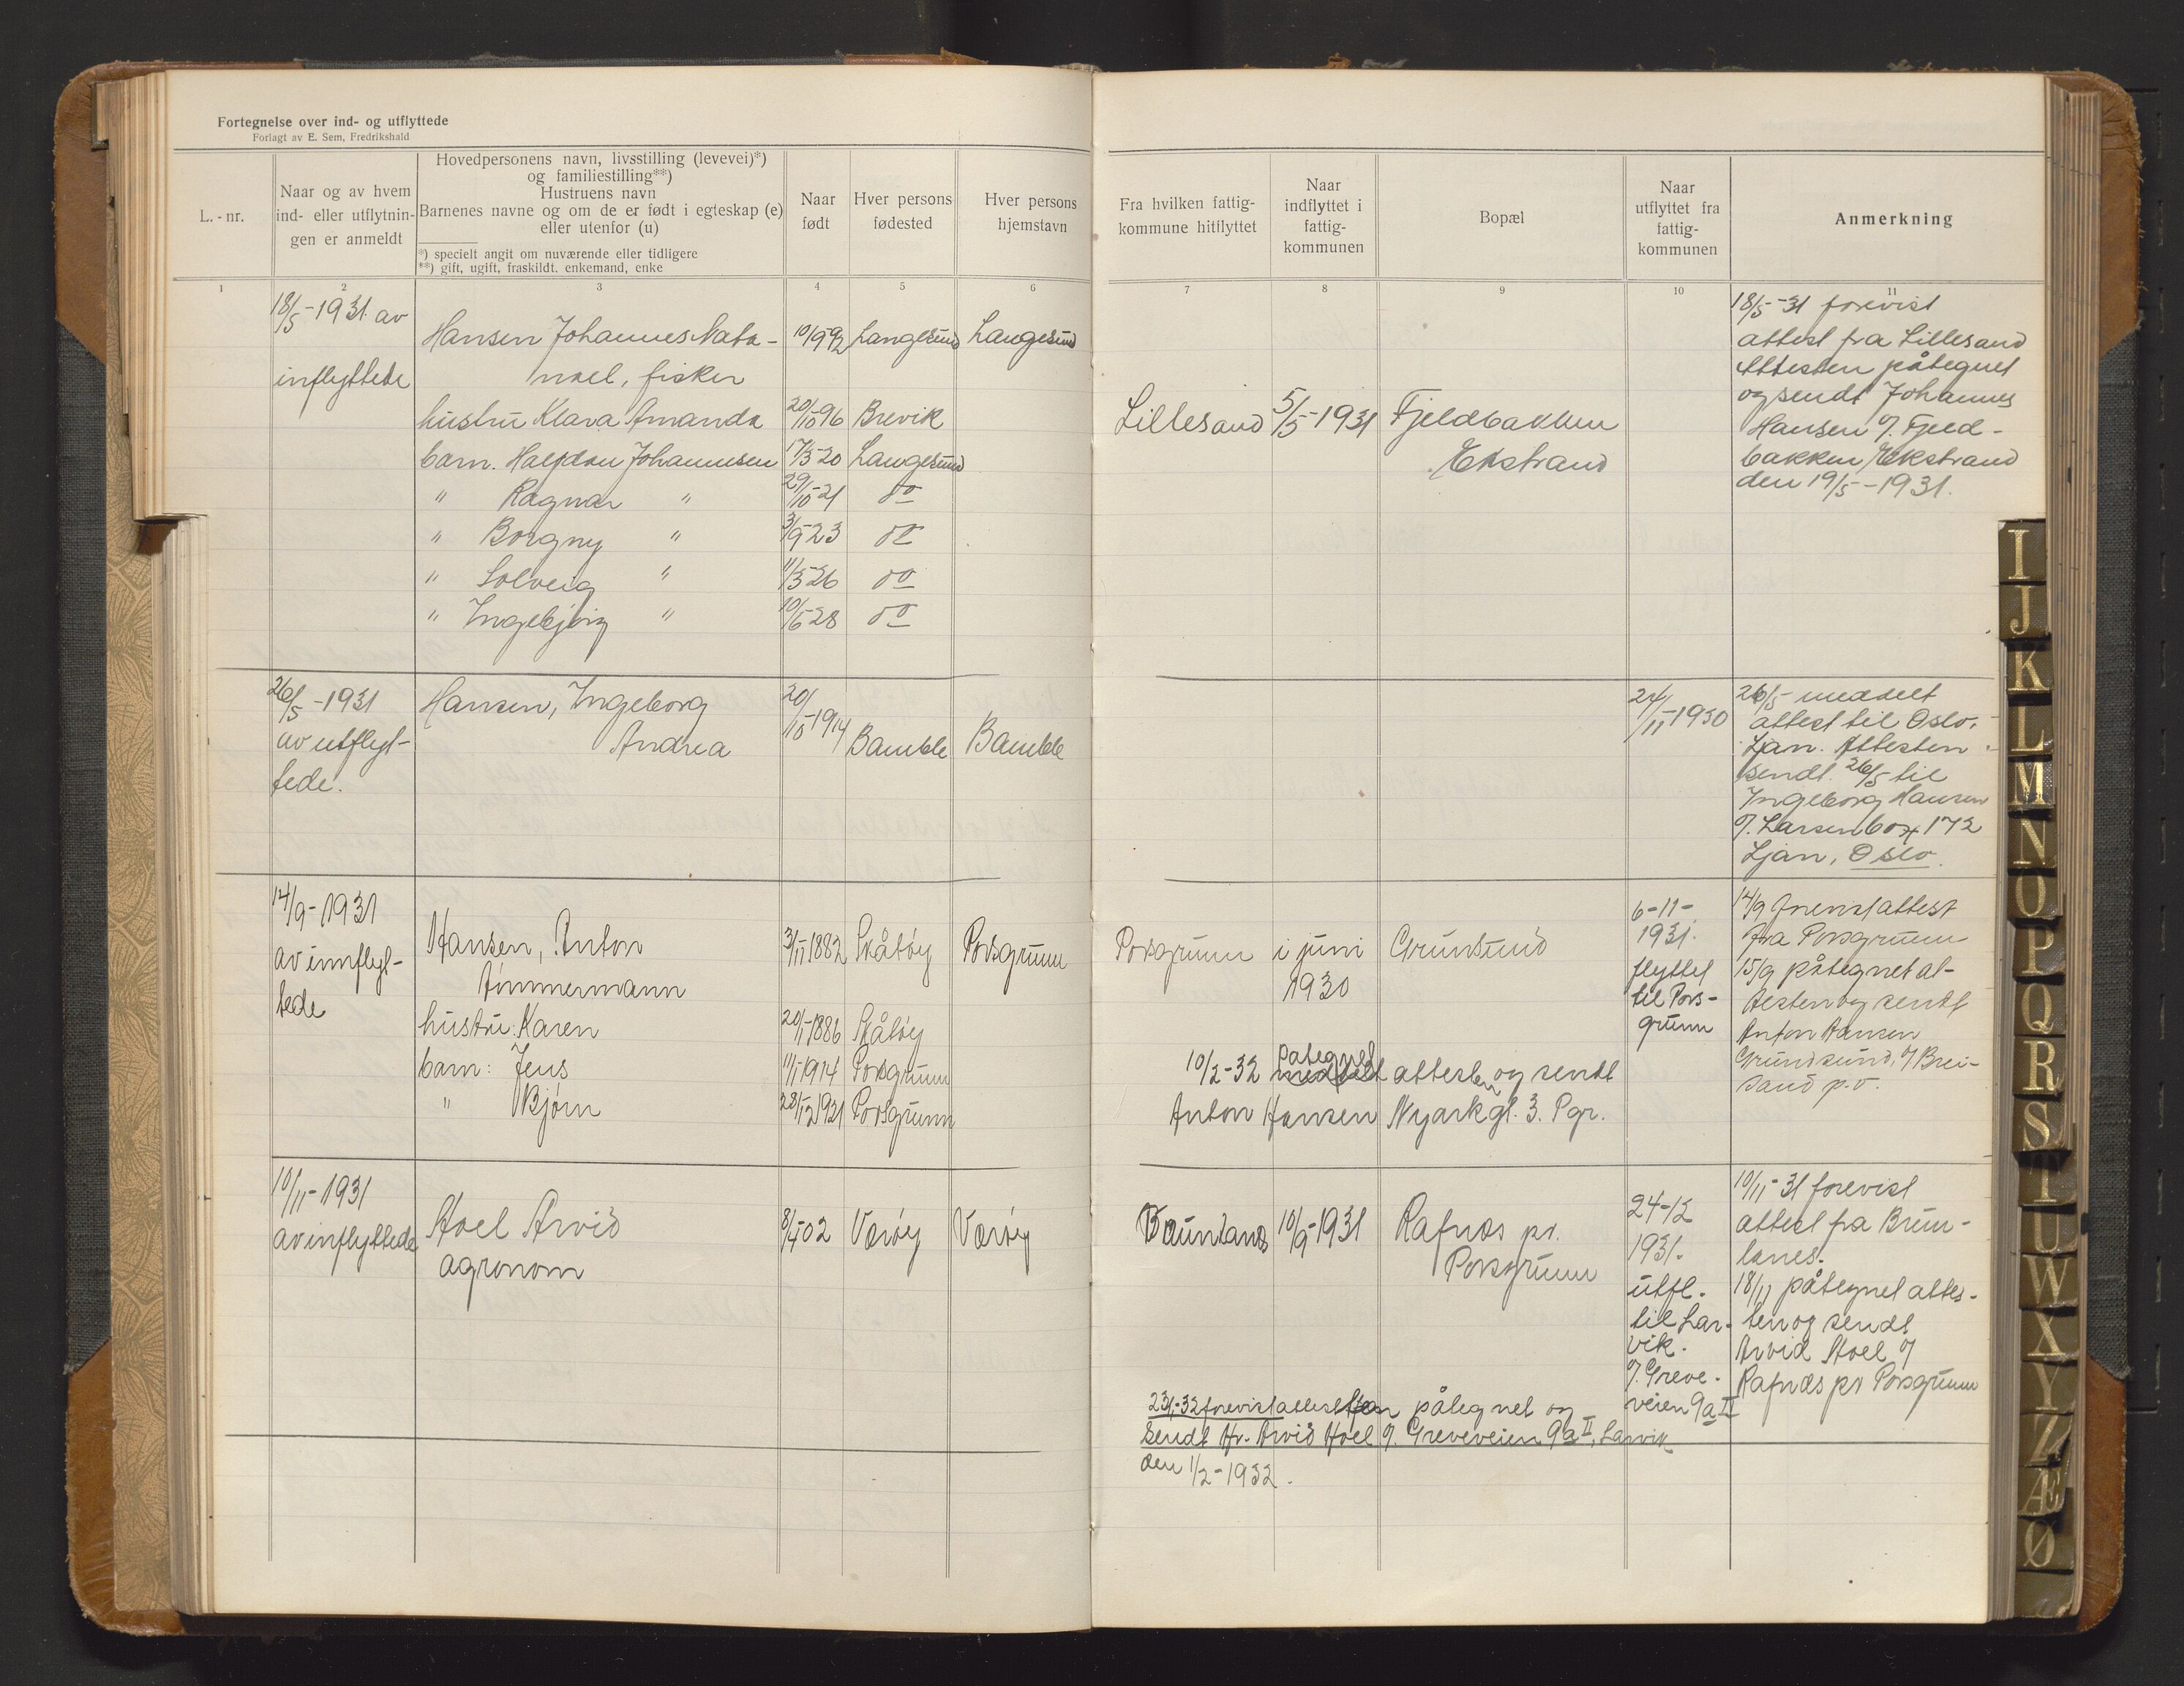 Fortegnelse over ind- og utflyttede
Forlagt av E. Sem, Fredrikshald
L.-nr.
Naar og av hvem
ind- eller utflytnin-
gen er anmeldt
Hovedpersonens navn, livsstilling (levevei)*)
og familiestilling**)
Hustruens navn
Barnenes navne og om de er født i egteskap (e)
eller utenfor (u)
*) specielt angit om nuværende eller tidligere
**) gift, ugift, fraskildt. enkemand, enke
Naar
født
Hver persons
fødested
Hver persons
hjemstavn
Fra hvilken fattig-
kommune hitflyttet
Naar
indflyttet i
fattig-
kommunen
Bopæl
Naar
utflyttet fra
fattig-
kommunen
Anmerkning
1 2 3 4 5 6 7 8 9 10 11
18/5-1931 av
inflyttede
Hansen Johannes Nata-
nael, fisker
10/9 92 Langesund Langesund
hustru Klara Amanda 20/10 96 Brevik
barn. Halfdan Johannsen 17/3-20 Langesund
" Ragnar " 29/10-21 do
" Borgny " 3/9-23 do
" Solveig " 11/3-26 do
" Ingebjørg " 10/6-28 do
Lillesand 5/5-1931 Fjeldbakken
Ekstrand
18/5-31 forevist
attest fra Lillesand
Attesten påtegnet
og sendt Johannes
Hansen 7. Fjeld-
bakken, Ekstrand
den 19/5-1931.
26/5-1931
av utflyt-
tede.
Hansen, Ingeborg
Andrea
20/10-1914 Bamble Bamble
24/11-1930
26/5- meddelt
attest til Oslo.
Ljan. Attesten
sendt 26/5 til
Ingeborg Hansen
7. Larsen box 172
Ljan, Oslo.
14/9-1931
av innflyt-
tede
Hansen, Anton
timmermann
3/11 1882 Skåtøy Porsgrunn
hustru: Karen 20/1-1886 Skåtøy
barn: Jens 11/1 1914 Porsgrunn
" Bjørn 28/12 1921 Porsgrunn
Porsgrunn i juni
1930
Grunsund
6-11-
1931.
flyttet
til Pors-
grunn
14/9 forevist attest
fra Porsgrunn
15/9 påtegnet at-
testen og sendt
Anton Hansen
Grundsund, 7 Brei-
sand p.v.
10/2-32 påtegnet meddelt attesten og sendt
Anton Hansen Nyarkgt. 3. Pgr.
10/11-1931
av inflyttede
Hoel Arvid
agronom
8/1-02 Værøy Værøy
Brunlanes 10/9-1931 Rafnes pr.
Porsgrunn
24-12
1931.
utfl.
til Lar-
vik.
7. Greve-
veien 9a II
10/11-31 forevist
attest fra Brun-
lanes.
18/11 påtegnet attes-
ten og sendt
Arvid Hoel 7
Rafnes pr Porsgrunn
23/1-32 forevist attesten påtegnet og
sendt Hr. Arvid Hoel 7. Greveveien 9a II, Larvik
den 1/2-1932.
I
J
K
L
M
N
O
P
Q
R
S
T
U
W
X
Y
Z
Æ
Ø